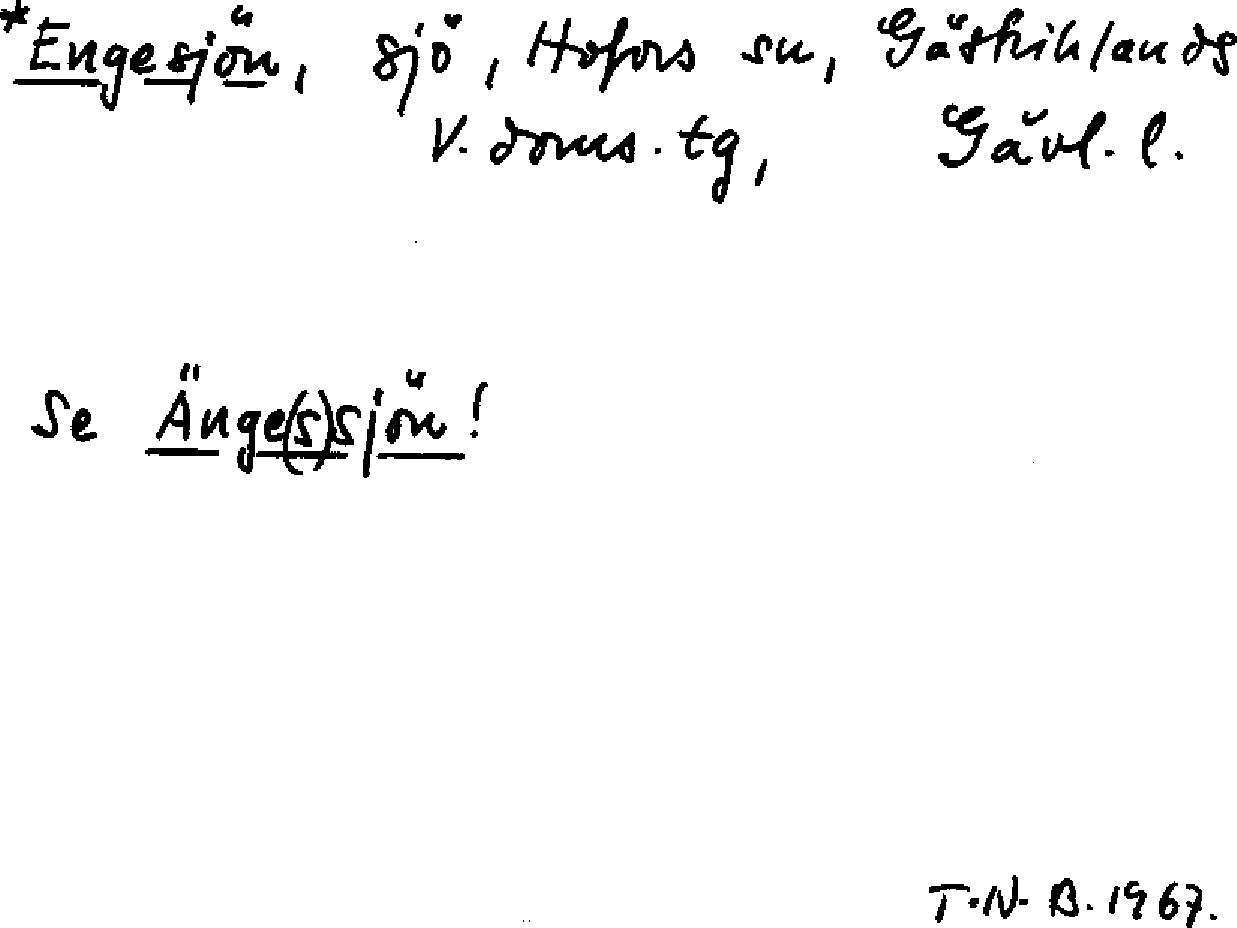 *Engesjön, sjö, Hofors sn, Gästriklands
V. doms. tg, Gävl. l.
Se Änge(s)sjön!
T.N.B. 1967.